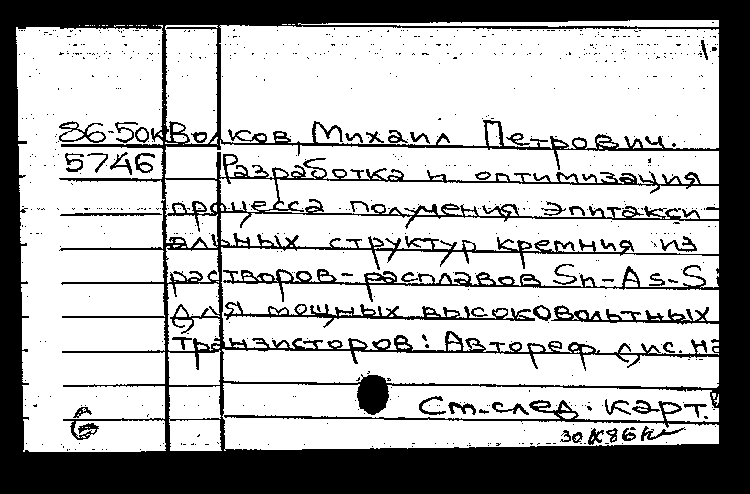 1.
86-50к Волков, Михаил Петрович.
5746 Разработка и оптимизация
процесса получения эпитакси-
альных структур кремния из
растворов-расплавов Sn-As-Si
для мощных высоковольтных
транзисторов: Автореф. дис. на
См. след. карт.